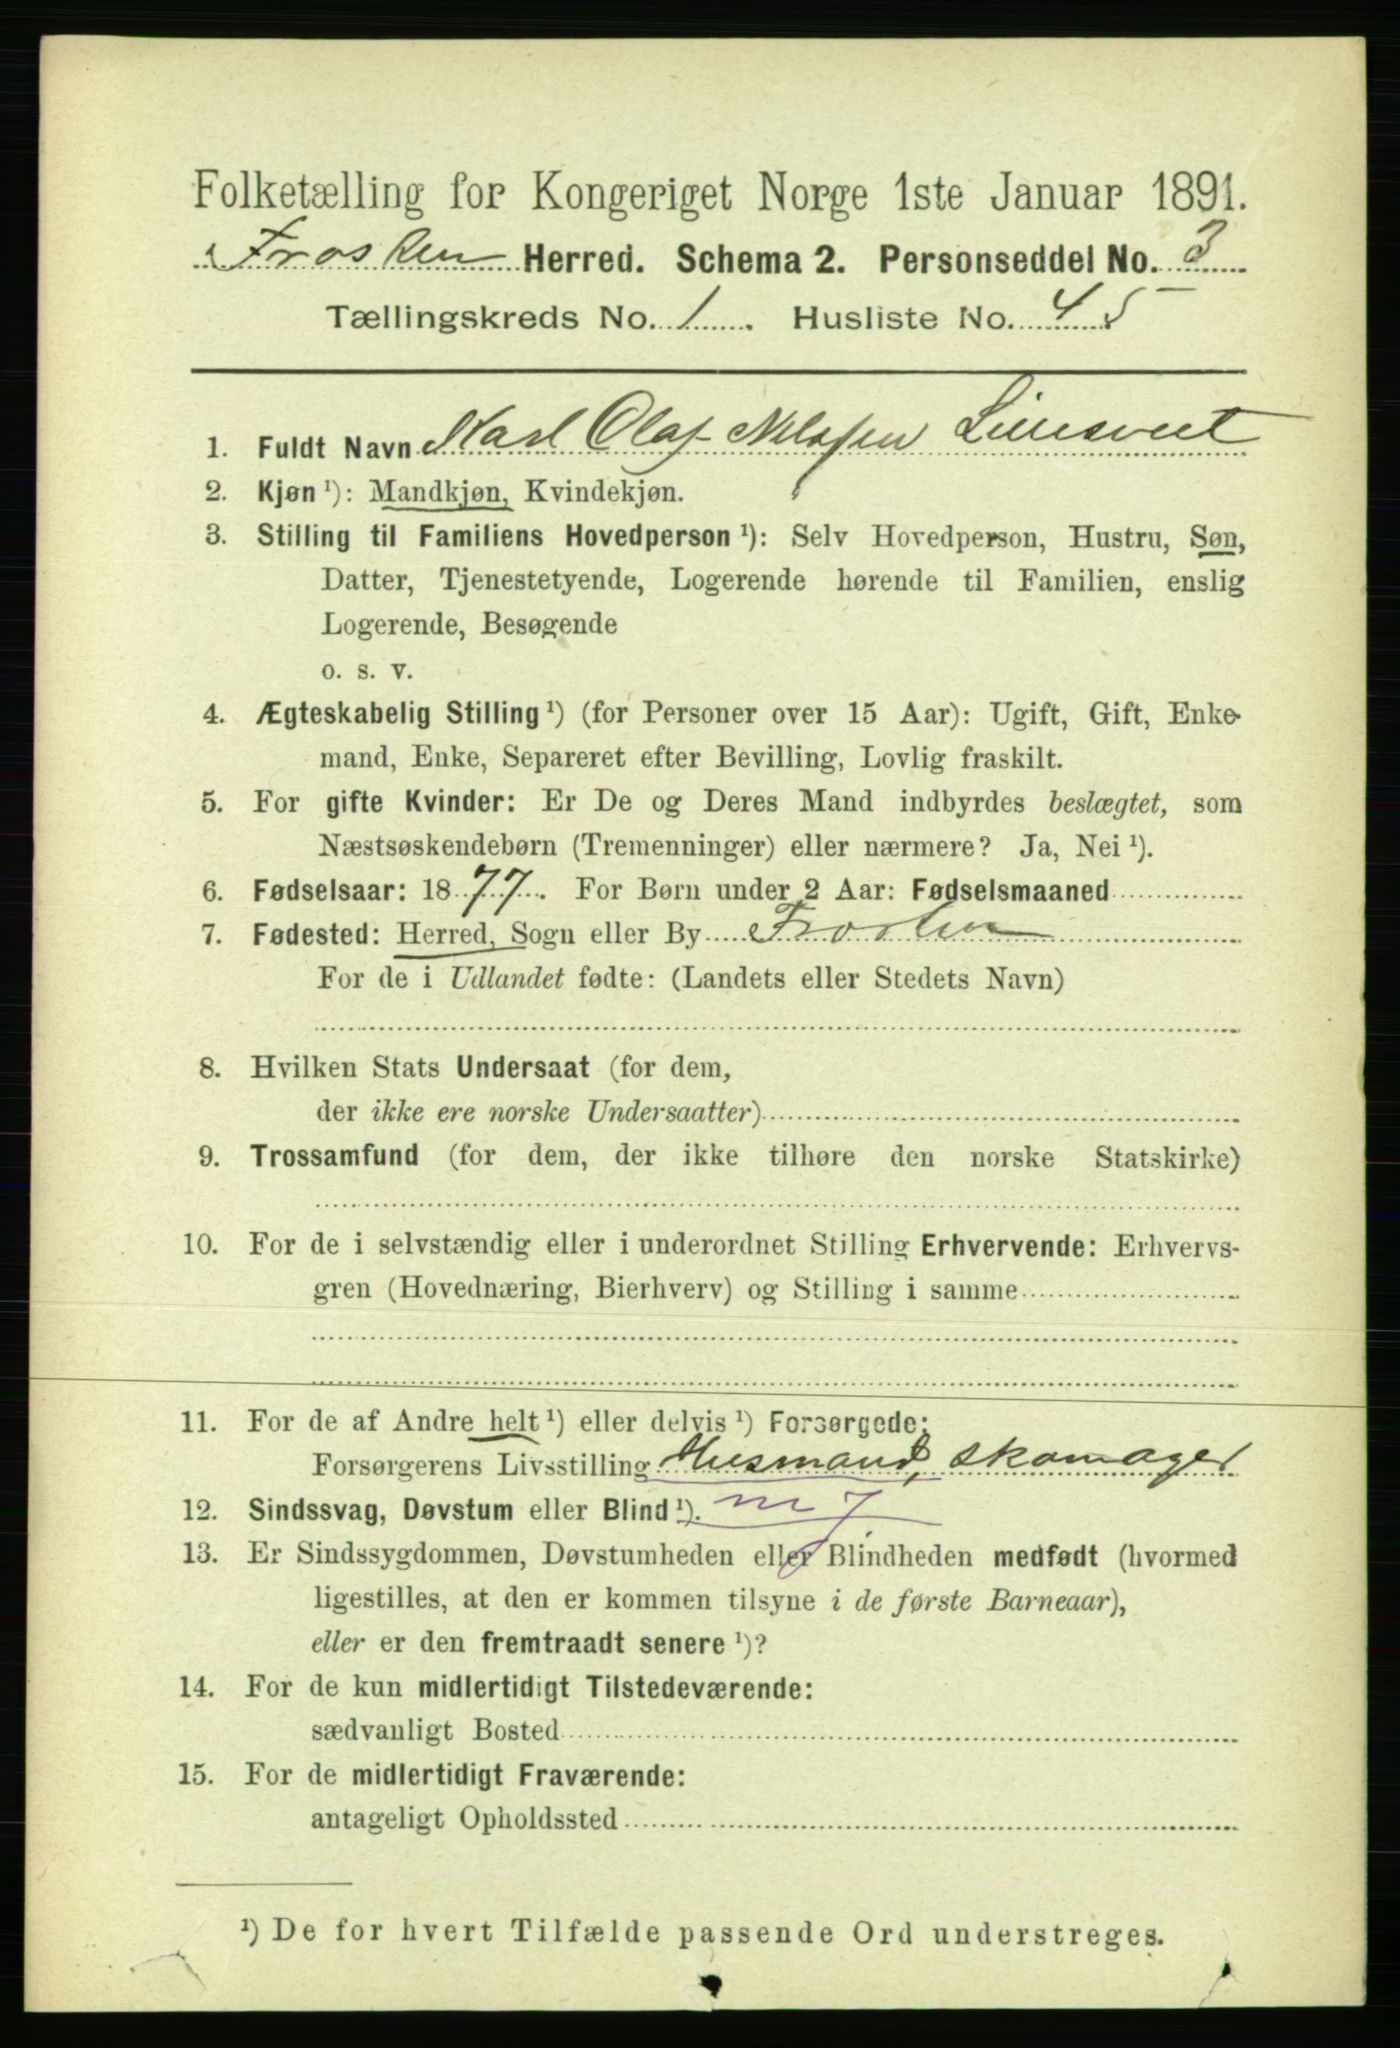 Folketælling for Kongeriget Norge 1ste Januar 1891.
Frosten Herred. Schema 2. Personseddel No. 3
Tællingskreds No. 1. Husliste No. 45
1. Fuldt Navn Karl Olaf Nilssen
2. Kjøn ¹): Mandkjøn, Kvindekjøn.
3. Stilling til Familiens Hovedperson ¹): Selv Hovedperson, Hustru, Søn,
Datter, Tjenestetyende, Logerende hørende til Familien, enslig
Logerende, Besøgende
o. s. v.
4. Ægteskabelig Stilling ¹) (for Personer over 15 Aar): Ugift, Gift, Enke-
mand, Enke, Separeret efter Bevilling, Lovlig fraskilt.
5. For gifte Kvinder: Er De og Deres Mand indbyrdes beslægtet, som
Næstsøskendebørn (Tremenninger) eller nærmere? Ja, Nei ¹).
6. Fødselsaar: 1877. For Børn under 2 Aar: Fødselsmaaned
7. Fødested: Herred, Sogn eller By Frosten
For de i Udlandet fødte: (Landets eller Stedets Navn)
8. Hvilken Stats Undersaat (for dem,
der ikke ere norske Undersaatter)
9. Trossamfund (for dem, der ikke tilhøre den norske Statskirke)
10. For de i selvstændig eller i underordnet Stilling Erhvervende: Erhvervs-
gren (Hovednæring, Bierhverv) og Stilling i samme
11. For de af Andre helt ¹) eller delvis ¹) Forsørgede:
Forsørgerens Livsstilling Husmand, skomager
12. Sindssvag, Døvstum eller Blind ¹).
13. Er Sindssygdommen, Døvstumheden eller Blindheden medfødt (hvormed
ligestilles, at den er kommen tilsyne i de første Barneaar),
eller er den fremtraadt senere ¹)?
14. For de kun midlertidigt Tilstedeværende:
sædvanligt Bosted
15. For de midlertidigt Fraværende:
antageligt Opholdssted
¹) De for hvert Tilfælde passende Ord understreges.